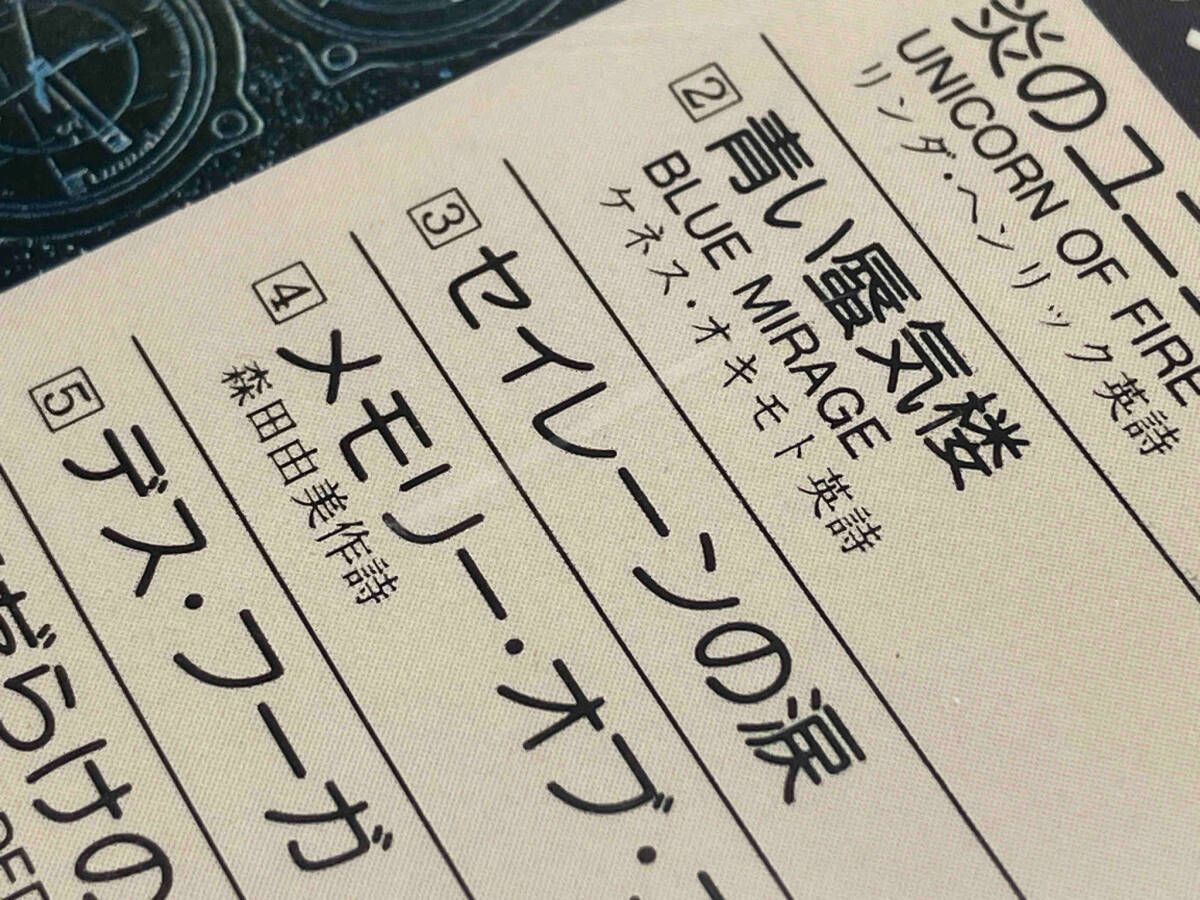 炎のユ
UNICORN OF FIRE
リンダ・ヘンリック英詩
2 青い蜃気楼
BLUE MIRAGE
ケネス・オキモト英詩
3 セイレーンの涙
4 メモリー・オブ・
森田由美作詩
5 デス・フーガ
だらけの